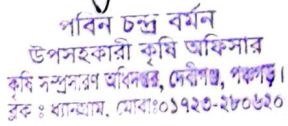 পবিন চন্দ্র বর্মন
উপসহকারী কৃষি অফিসার
কৃষি সম্প্রসারণ অধিদপ্তর, দেবীগঞ্জ, পঞ্চগড়।
ব্লক : ধ্যানগ্রাম, মোবাঃ০১৭২৩-২৮০৬২০